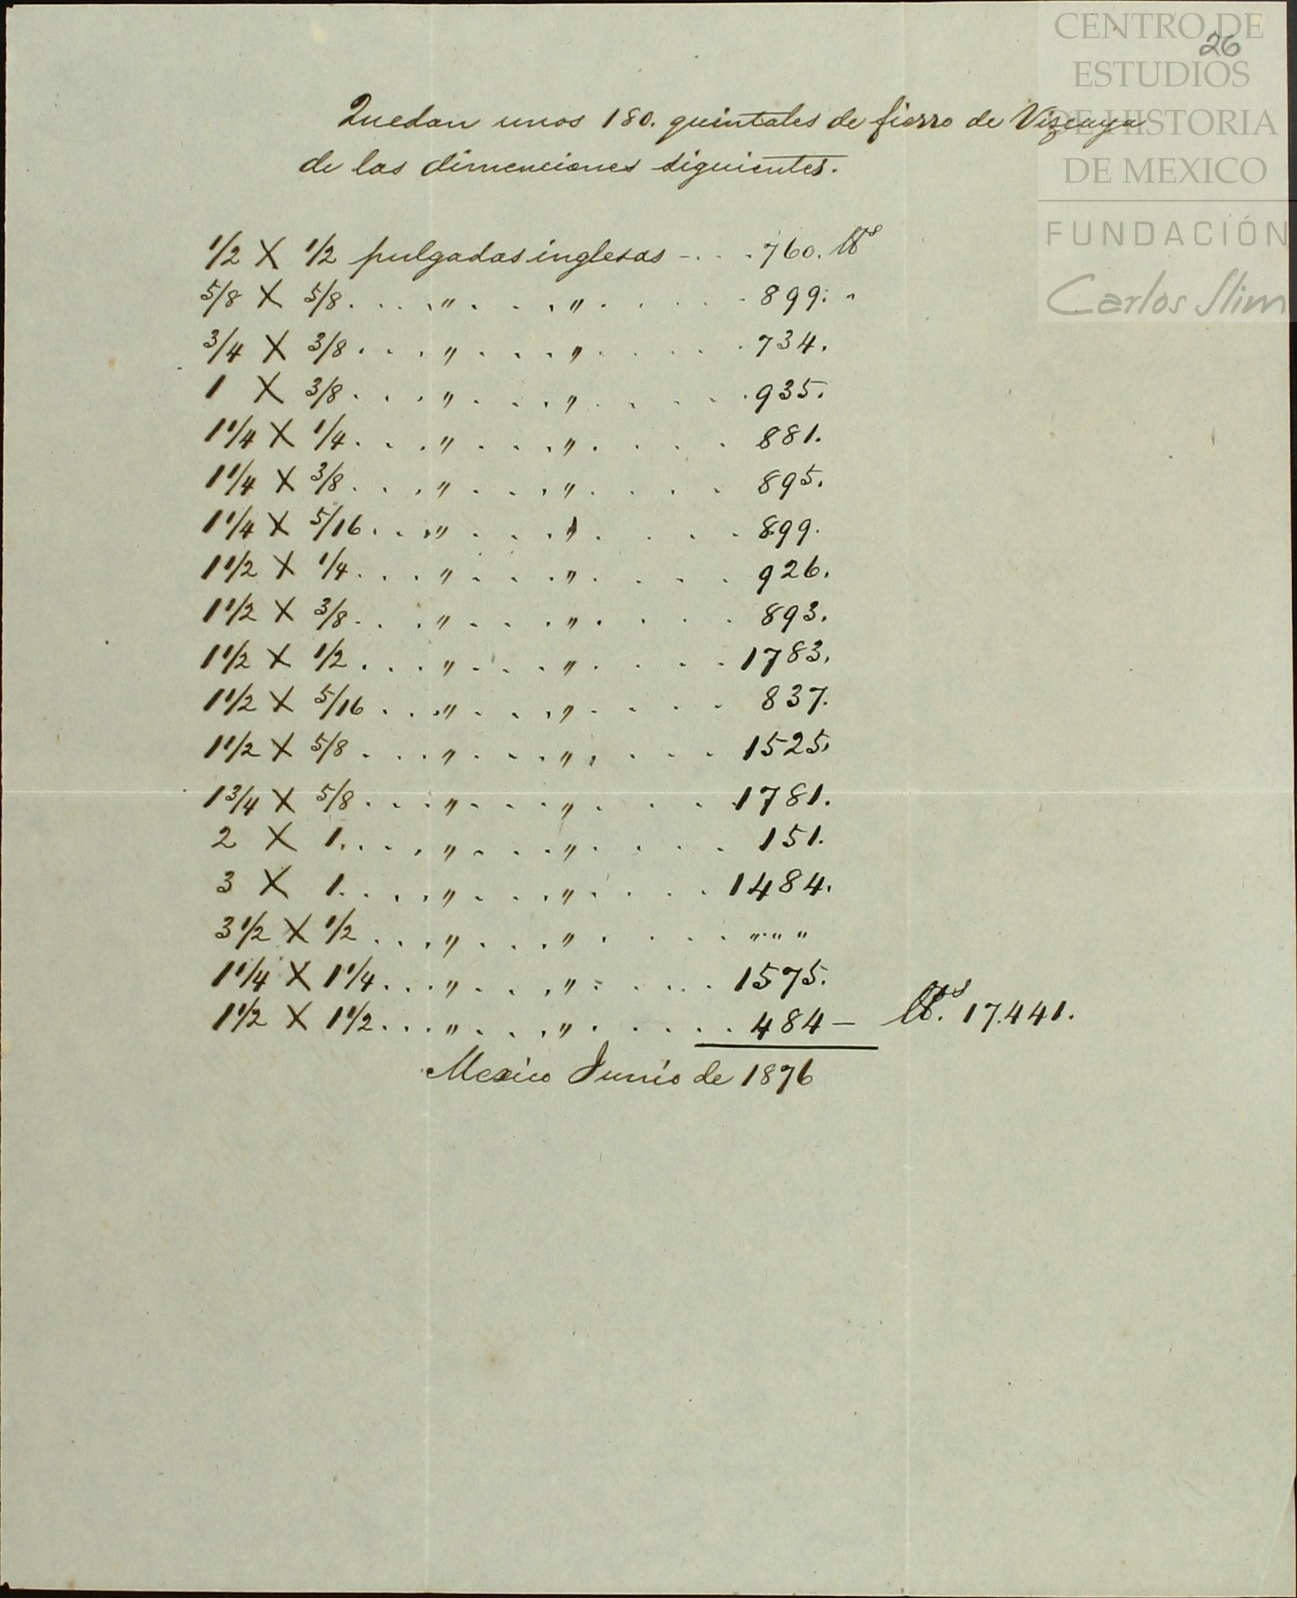 CENTRO DE
ESTUDIOS
DE HISTORIA
DE MEXICO
FUNDACIÓN
Carlos Slim
26
Quedan unos 180. quintales de fierro de Vizcaya
de las dimenciones siguientes.
1/2 X 1/2 pulgadas inglesas - . . . 760. lbs
5/8 X 5/8. . . . " . . . " . . . . . 899. "
3/4 X 3/8. . . . " . . . " . . . . . 734.
1 X 3/8. . . . " . . . " . . . . . 935.
1 1/4 X 1/4. . . . " . . . " . . . . 881.
1 1/4 X 3/8. . . . " . . . " . . . . 895.
1 1/4 X 5/16. . . " . . . " . . . . 899.
1 1/2 X 1/4. . . . " . . . " . . . . 926.
1 1/2 X 3/8. . . . " . . . " . . . . 893.
1 1/2 X 1/2. . . . " . . . " . . . . 1783.
1 1/2 X 5/16. . . " . . . " . . . . 837.
1 1/2 X 5/8. . . . " . . . " . . . . 1525.
1 3/4 X 5/8. . . . " . . . " . . . . 1781.
2 X 1. . . . . " . . . " . . . . 151.
3 X 1. . . . . " . . . " . . . . 1484.
3 1/2 X 1/2. . . . " . . . " . . . . " " " "
1 1/4 X 1 1/4. . . " . . . " . . . . 1575.
1 1/2 X 1 1/2. . . " . . . " . . . . 484 — lbs. 17.441.
Mexico Junio de 1876